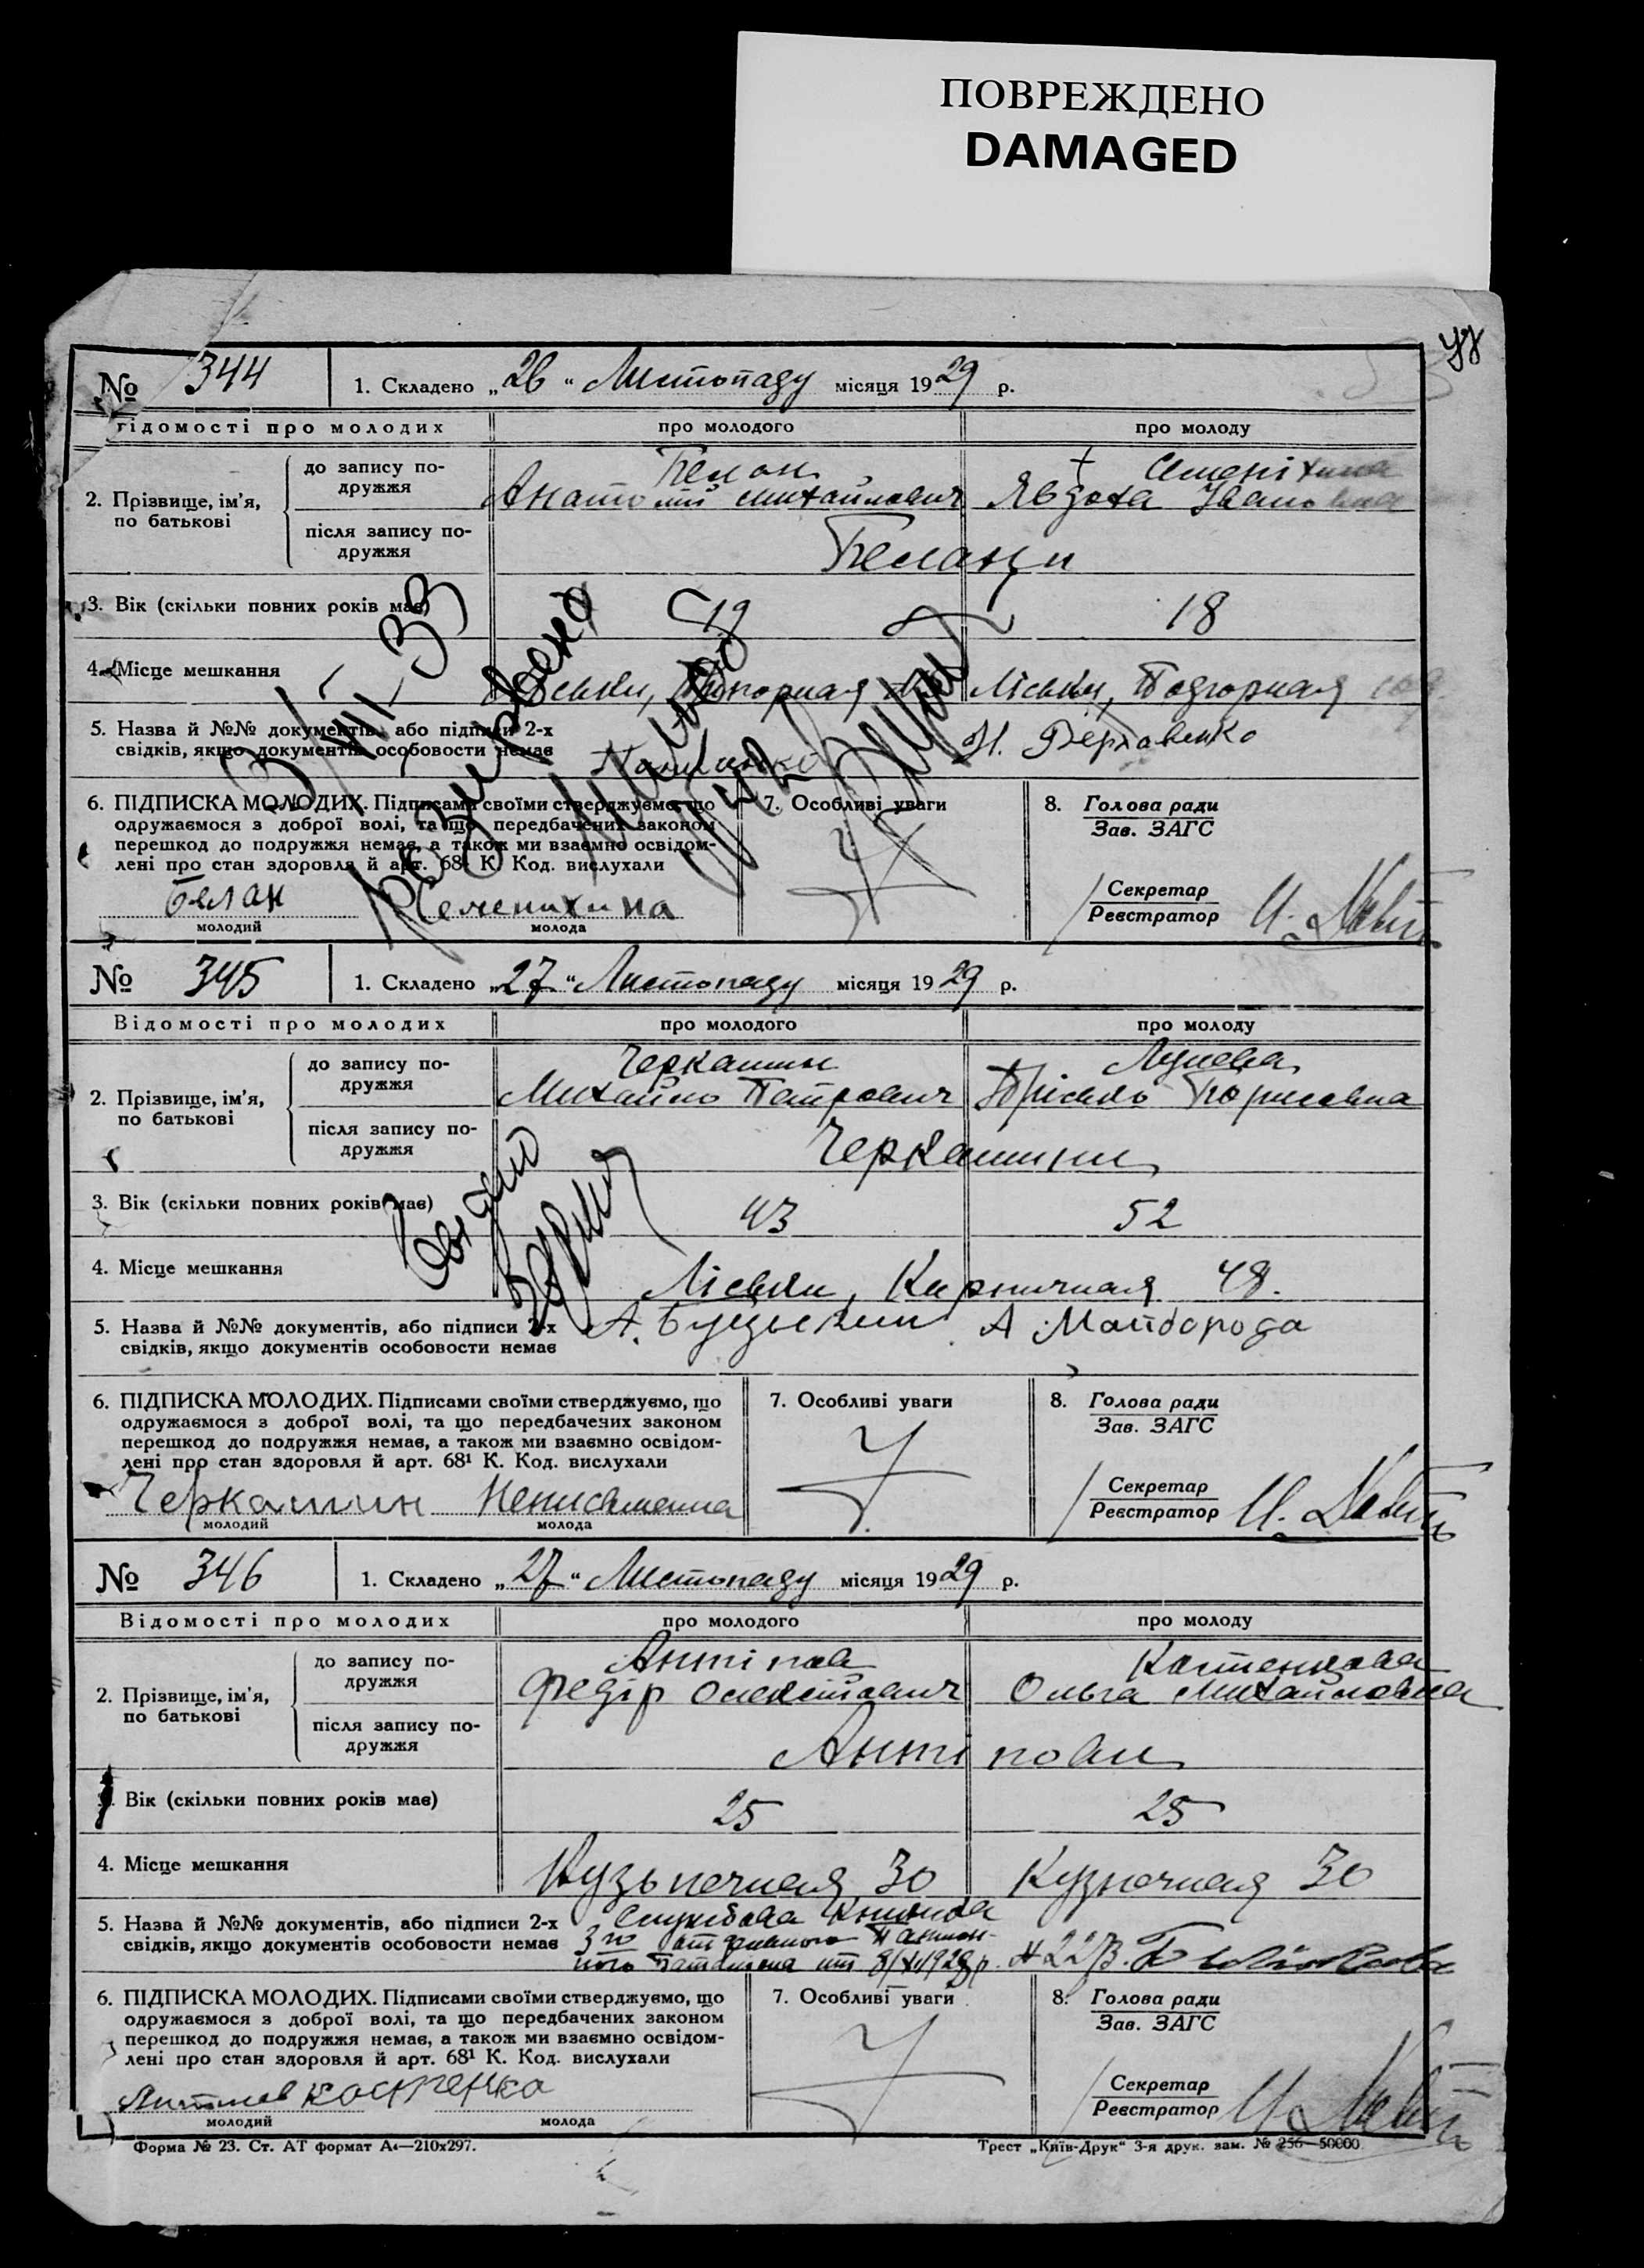 ПОВРЕЖДЕНО
DAMAGED
№ 344 1. Складено „26“ Листопаду місяця 1929 р.
відомості про молодих про молодого про молоду
2. Прізвище, ім’я, по батькові
до запису по-
дружжя
Белан Семеніхина
Анатолій Михайлович Явдоха Ивановна
після запису по-
дружжя
Белани
3. Вік (скільки повних років має) 19 18
4. Місце мешкання Ліськи, Ліськи, Подгорная
5. Назва й №№ документів, або підписи 2-х
свідків, якщо документів особовости немає
Н. Державенко
6. ПІДПИСКА МОЛОДИХ. Підписами своїми стверджуємо, що
одружаємося з доброї волі, та що передбачених законом
перешкод до подружжя немає, а також ми взаємно освідом-
лені про стан здоровля й арт. 68¹ К. Код. вислухали
Белан Семенихина
молодий молода
7. Особливі уваги
8. Голова ради
Зав. ЗАГС
Секретар
Реєстратор
№ 345 1. Складено „27“ Листопаду місяця 1929 р.
Відомості про молодих про молодого про молоду
2. Прізвище, ім’я, по батькові
до запису по-
дружжя
Черкашин Лунева
Михайло Петрович Борисовна
після запису по-
дружжя
Черкашини
3. Вік (скільки повних років має) 43 52
4. Місце мешкання Ліськи, Кирпичная 48.
5. Назва й №№ документів, або підписи 2-х
свідків, якщо документів особовости немає
А. А Майборода
6. ПІДПИСКА МОЛОДИХ. Підписами своїми стверджуємо, що
одружаємося з доброї волі, та що передбачених законом
перешкод до подружжя немає, а також ми взаємно освідом-
лені про стан здоровля й арт. 68¹ К. Код. вислухали
Черкашин Неписьменна
молодий молода
7. Особливі уваги
8. Голова ради
Зав. ЗАГС
Секретар
Реєстратор
№ 346 1. Складено „27“ Листопаду місяця 1929 р.
Відомості про молодих про молодого про молоду
2. Прізвище, ім’я, по батькові
до запису по-
дружжя
Антіпов Костенкова
Федір Олексійович Ольга Михайловна
після запису по-
дружжя
Антіпови
3. Вік (скільки повних років має) 25 25
4. Місце мешкання Кузьнечная 30 Кузнечная 30
5. Назва й №№ документів, або підписи 2-х
свідків, якщо документів особовости немає
Службова книжка
6. ПІДПИСКА МОЛОДИХ. Підписами своїми стверджуємо, що
одружаємося з доброї волі, та що передбачених законом
перешкод до подружжя немає, а також ми взаємно освідом-
лені про стан здоровля й арт. 68¹ К. Код. вислухали
Антипов Костенко
молодий молода
7. Особливі уваги
8. Голова ради
Зав. ЗАГС
Секретар
Реєстратор
Форма № 23. Ст. АТ формат А₄—210х297.
Трест „Київ-Друк“ 3-я друк. зам. № 256—50000